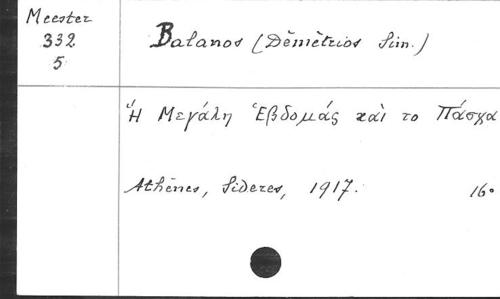 Meester
332
5
Balanos (Dèmètrios Sim.)
Ἡ Μεγάλη Ἑβδομάς καὶ το Πάσχα
Athènes, Sideres, 1917. 16°